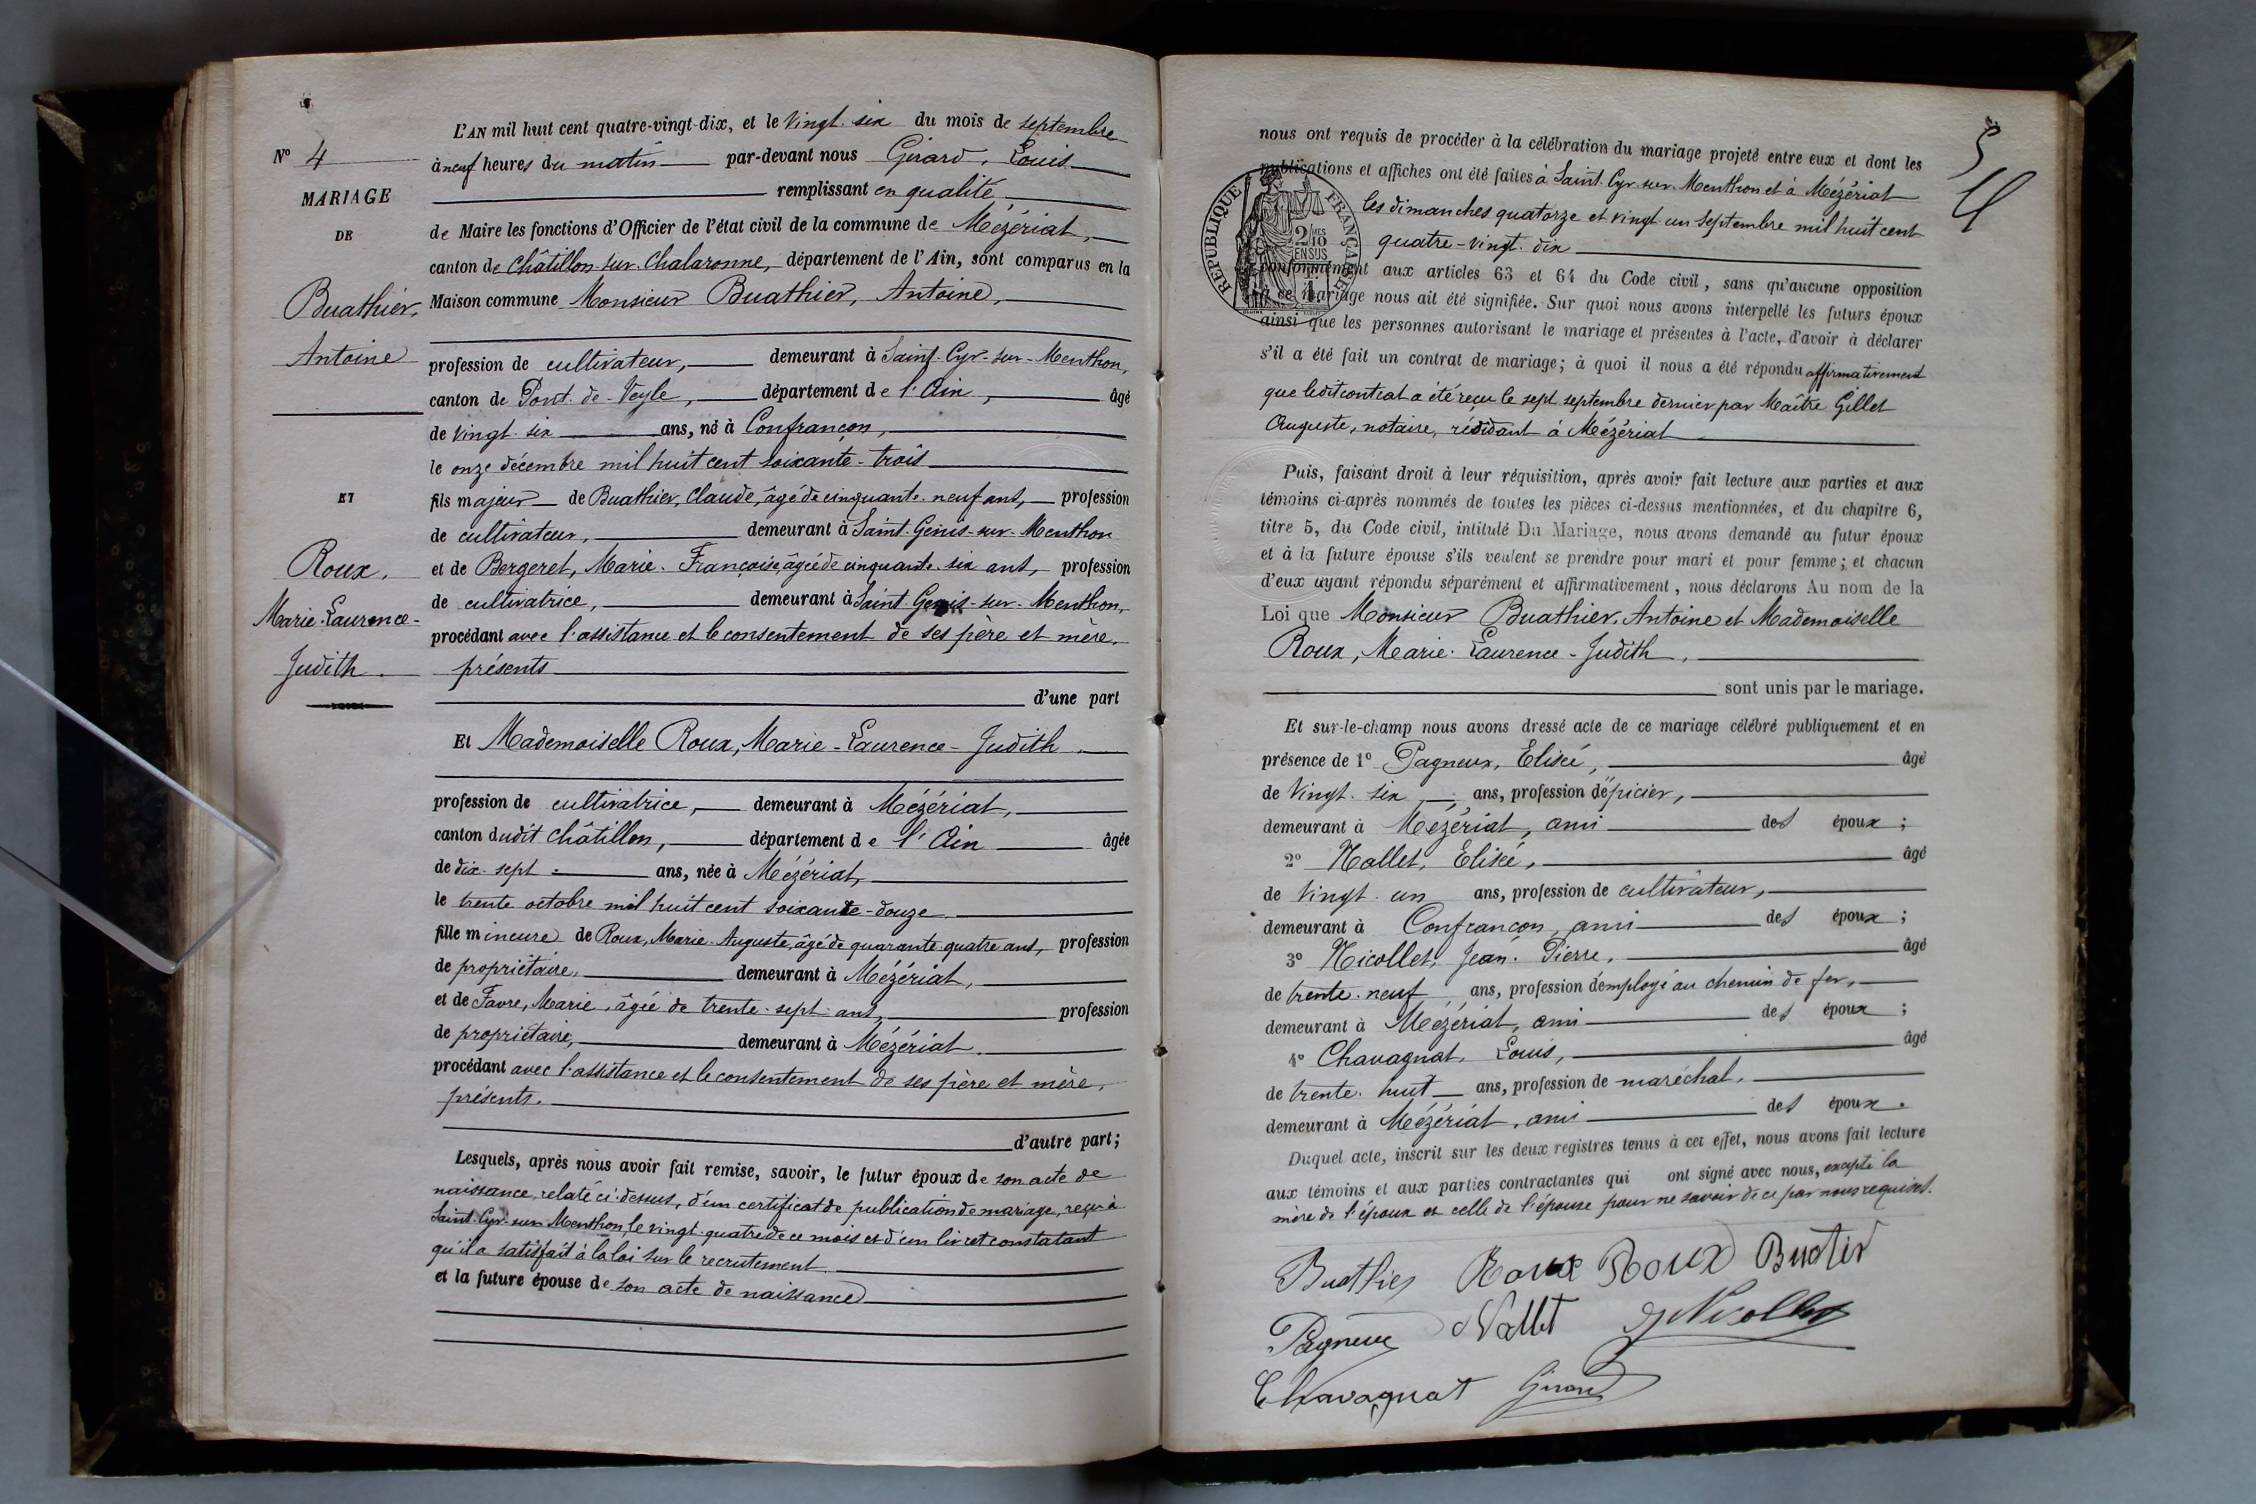 L'AN mil huit cent quatre-vingt-dix, et le vingt-six du mois de septembre
N° 4
à neuf heures du matin par-devant nous Girard, Louis
MARIAGE
remplissant en qualité
DE
de Maire les fonctions d'Officier de l'état civil de la commune de Mézériat,
canton de Châtillon-sur-Chalaronne, département de l'Ain, sont comparus en la
Buathier,
Maison commune Monsieur Buathier, Antoine,
Antoine
profession de cultivateur, demeurant à Saint-Cyr-sur-Menthon,
canton de Pont-de-Veyle, département de l'Ain, âgé
de vingt-six ans, né à Confrançon,
le onze décembre mil huit cent soixante-trois
ET
fils majeur de Buathier, Claude, âgé de cinquante-neuf ans, profession
de cultivateur, demeurant à Saint-Genis-sur-Menthon
Roux,
et de Bergeret, Marie-Françoise, âgée de cinquante-six ans, profession
de cultivatrice, demeurant à Saint-Genis-sur-Menthon,
Marie-Laurence-
procédant avec l'assistance et le consentement de ses père et mère,
Judith.
présents
d'une part
Et Mademoiselle Roux, Marie-Laurence-Judith.
profession de cultivatrice, demeurant à Mézériat,
canton dudit Châtillon, département de l'Ain âgée
de dix-sept ans, née à Mézériat,
le trente octobre mil huit cent soixante-douze
fille mineure de Roux, Marie-Auguste, âgé de quarante-quatre ans, profession
de propriétaire, demeurant à Mézériat,
et de Favre, Marie, âgée de trente-sept ans, profession
de propriétaire, demeurant à Mézériat.
procédant avec l'assistance et le consentement de ses père et mère,
présents.
d'autre part;
Lesquels, après nous avoir fait remise, savoir, le futur époux de son acte de
naissance, relaté ci-dessus, d'un certificat de publication de mariage, reçu à
Saint-Cyr-sur-Menthon, le vingt-quatre de ce mois et d'un livret constatant
qu'il a satisfait à la loi sur le recrutement.
et la future épouse de son acte de naissance
nous ont requis de procéder à la célébration du mariage projeté entre eux et dont les
5
publications et affiches ont été faites à Saint-Cyr-sur-Menthon et à Mézériat
les dimanches quatorze et vingt-un septembre mil huit cent
quatre-vingt-dix
RÉPUBLIQUE FRANÇAISE
2/10
EN SUS
conformément aux articles 63 et 64 du Code civil, sans qu'aucune opposition
à ce mariage nous ait été signifiée. Sur quoi nous avons interpellé les futurs époux
ainsi que les personnes autorisant le mariage et présentes à l'acte, d'avoir à déclarer
s'il a été fait un contrat de mariage; à quoi il nous a été répondu affirmativement
que ledit contrat a été reçu le sept septembre dernier par Maître Gillet
Auguste, notaire, résidant à Mézériat
Puis, faisant droit à leur réquisition, après avoir fait lecture aux parties et aux
témoins ci-après nommés de toutes les pièces ci-dessus mentionnées, et du chapitre 6,
titre 5, du Code civil, intitulé Du Mariage, nous avons demandé au futur époux
et à la future épouse s'ils veulent se prendre pour mari et pour femme; et chacun
d'eux ayant répondu séparément et affirmativement, nous déclarons Au nom de la
Loi que Monsieur Buathier, Antoine et Mademoiselle
Roux, Marie-Laurence-Judith,
sont unis par le mariage.
Et sur-le-champ nous avons dressé acte de ce mariage célébré publiquement et en
présence de 1° Pagneux, Elisée, âgé
de vingt-six ans, profession d'épicier,
demeurant à Mézériat, ami des époux;
2° Nallet, Elisée, âgé
de vingt-un ans, profession de cultivateur,
demeurant à Confrançon, ami des époux;
3° Nicollet, Jean-Pierre, âgé
de trente-neuf ans, profession d'employé au chemin de fer,
demeurant à Mézériat, ami des époux;
4° Chavagnat, Louis, âgé
de trente-huit ans, profession de maréchal,
demeurant à Mézériat, ami des époux.
Duquel acte, inscrit sur les deux registres tenus à cet effet, nous avons fait lecture
aux témoins et aux parties contractantes qui ont signé avec nous, excepté la
mère de l'époux et celle de l'épouse pour ne savoir de ce par nous requises.
Buathier Roux Roux Buatier
Pagneux Nallet J Nicollet
Chavagnat Girard